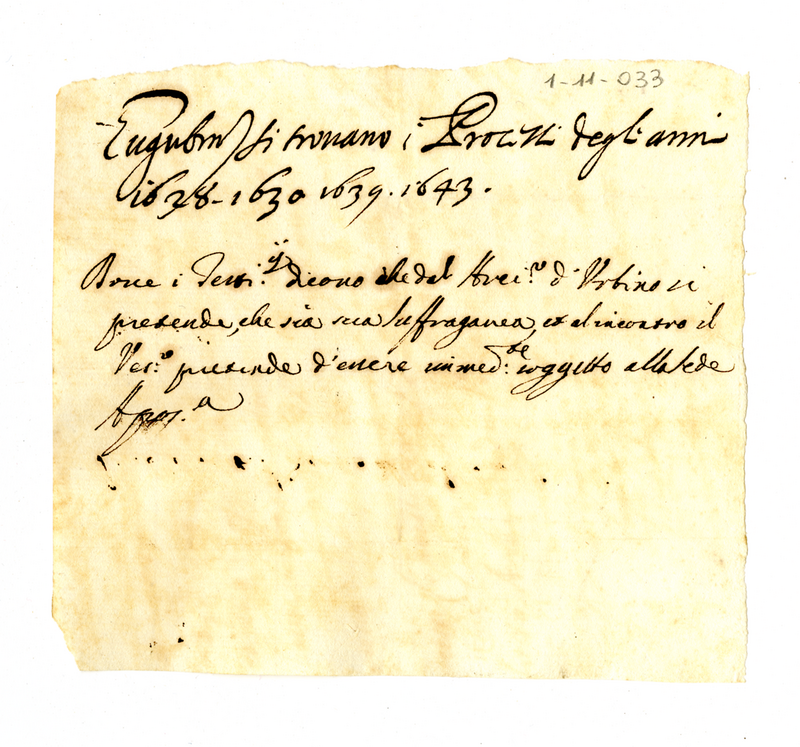 1-11-033
Eugubin) si trovano i Processi degli anni
1638-1630 1639. 1643.
Dove i Testi.ij dicono che dal Arci.o d'Urbino si
pretende, che sia sua suffraganea, et al incontro il
Ves.o pretende d'essere immed.te soggetto alla sede
Apos.a